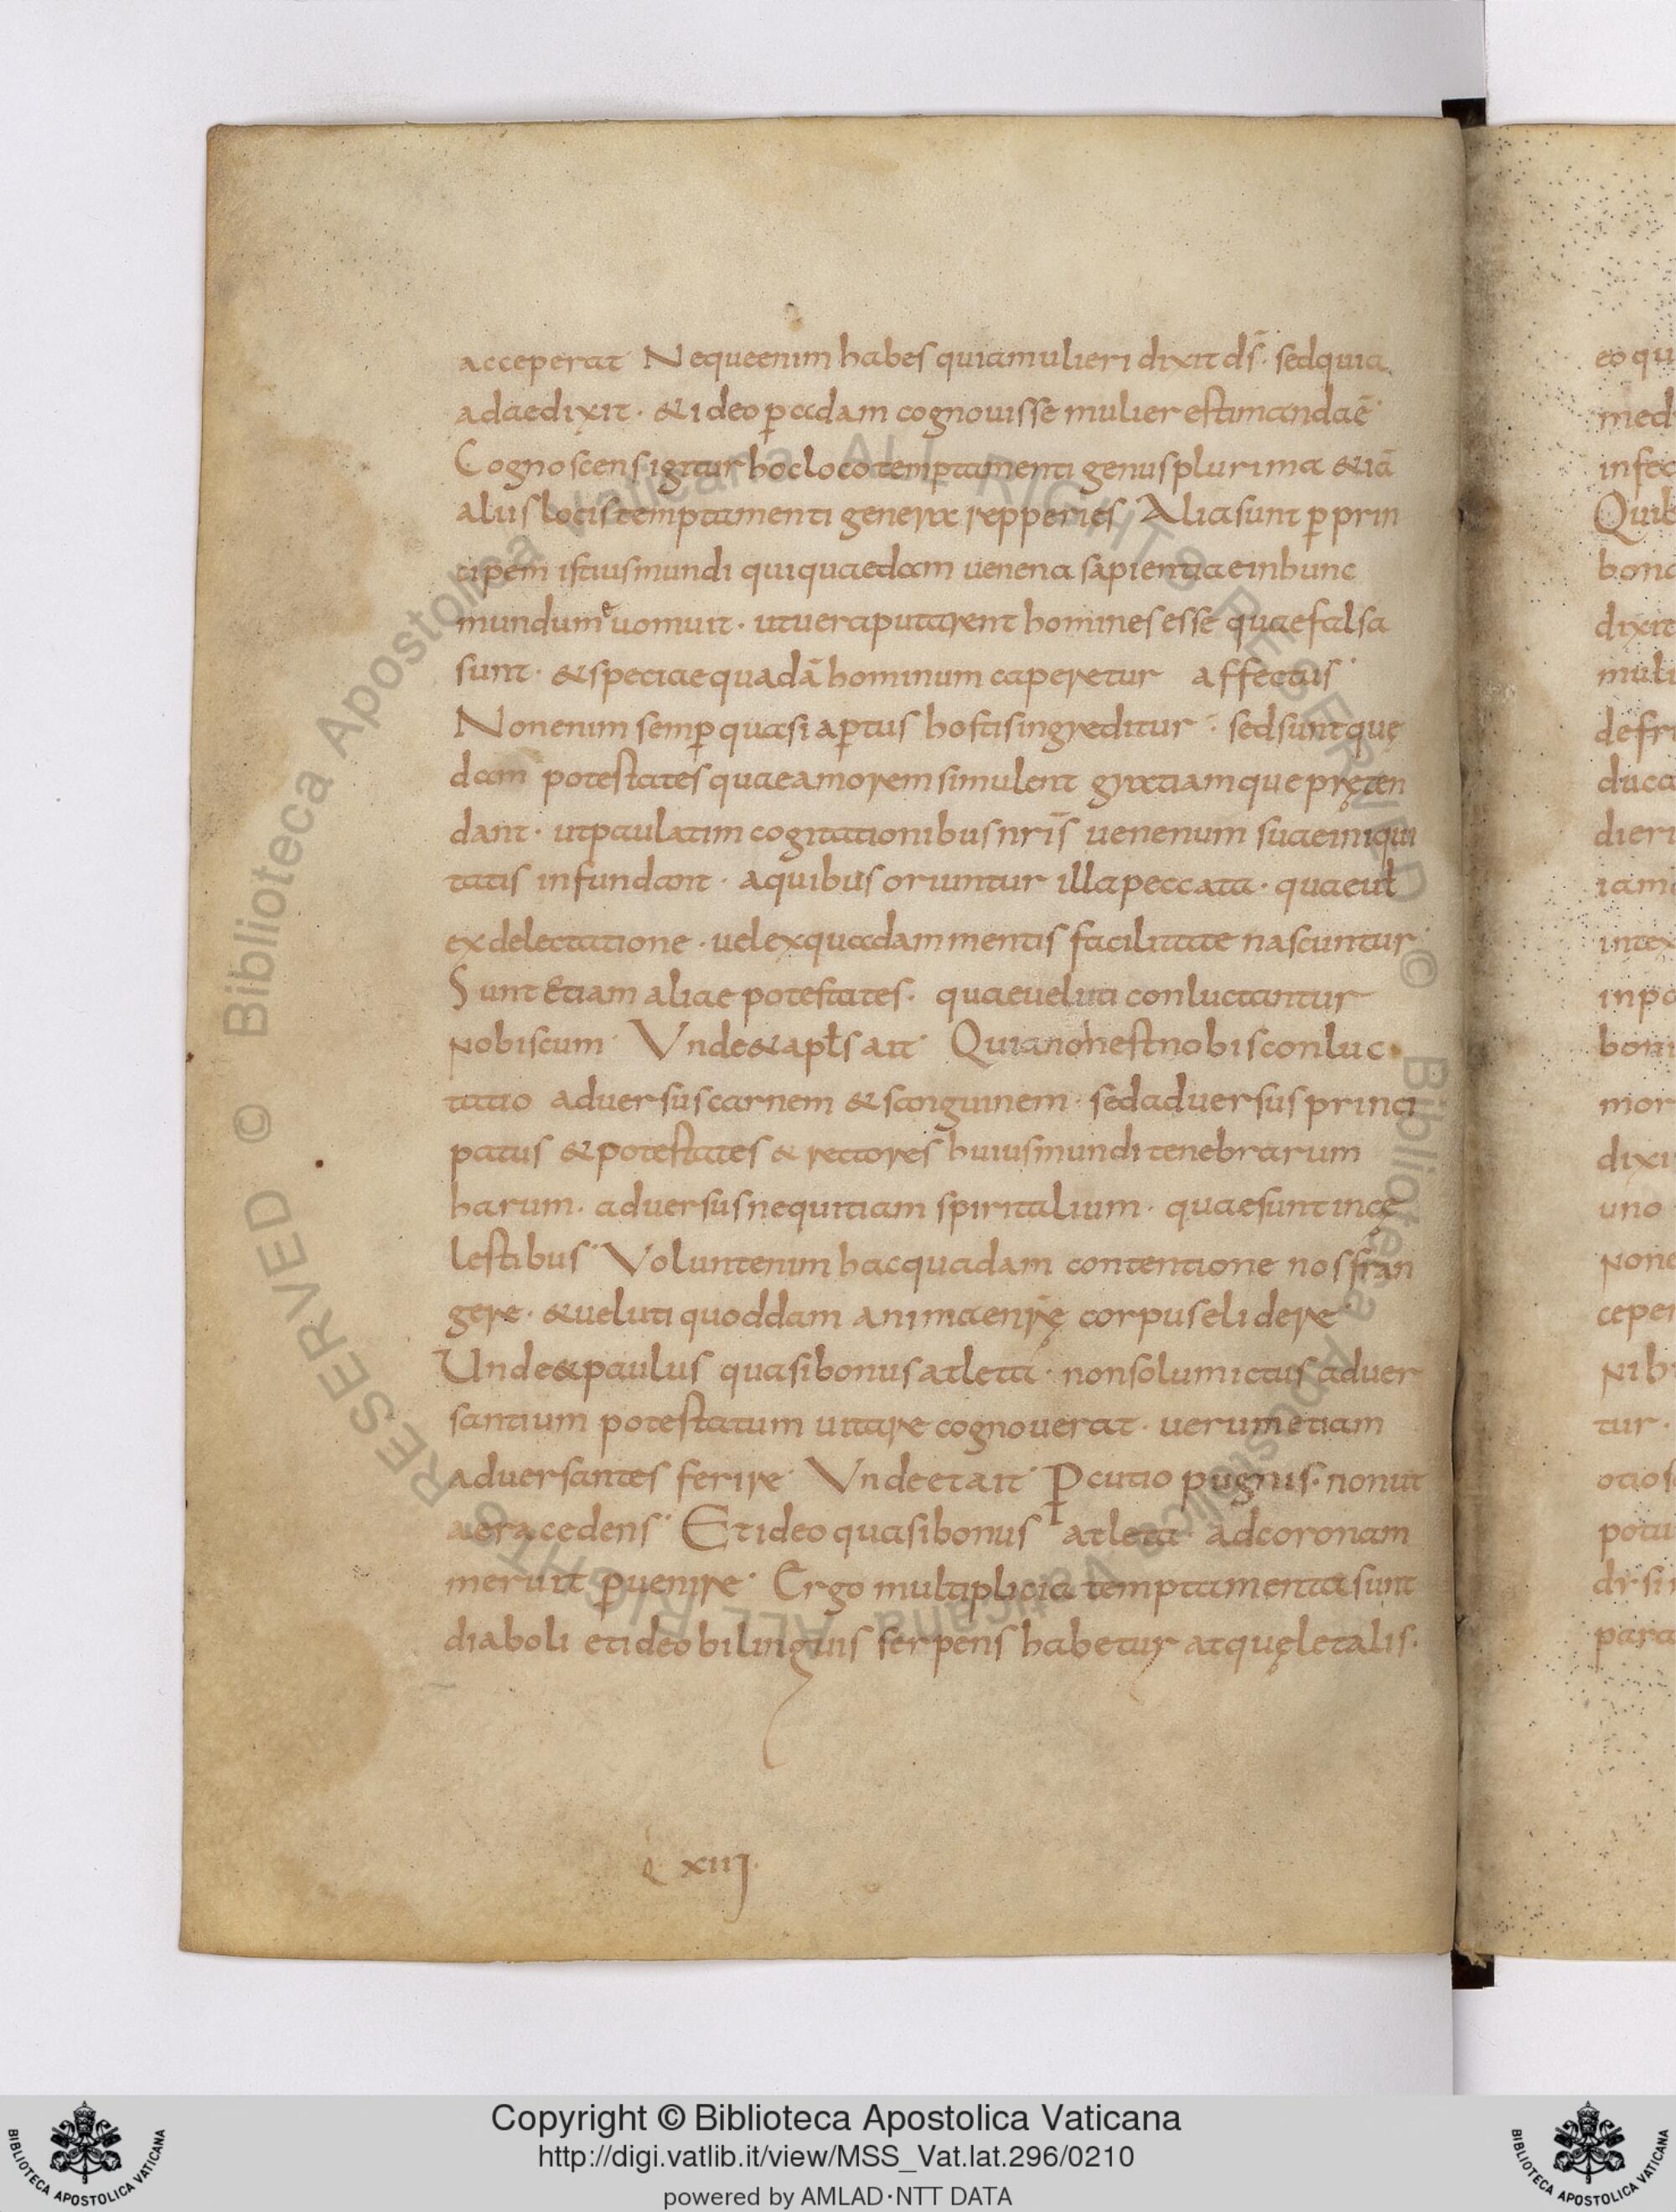 acceperat Neque enim habes quia mulieri dixit ds̄· sed quia
adae dixit· & ideo ꝑ adam cognouisse mulier estimanda ē·
Cognoscens igitur hoc loco temptamenti genus plurima & iā
aliis locis temptamenti genera repperies Alia sunt ꝑ prin
cipem istius mundi qui quaedam uenena sapientiae in hunc
mundum euomuit· ut uera putarent homines esse quae falsa
sunt· & speciae quadā hominum caperetur affectus·
Non enim semꝑ quasi aꝑtus hostis ingreditur· sed sunt quę
dam potestates quae amorem simulent gratiamque pręten
dant· ut paulatim cogitationibus nr̄is uenenum suae iniqui
tatis infundant· a quibus oriuntur illa peccata· quae uł
ex delectatione· uel ex quadam mentis facilitate nascuntur·
Sunt etiam aliae potestates· quae ueluti conluctantur
nobiscum· Vnde & apłs ait· Quia non est nobis conluc
tatio aduersus carnem & sanguinem· sed aduersus princi
patus & potestates & rectores huius mundi tenebrarum
harum· aduersus nequitiam spiritalium· quae sunt in cę
lestibus· Volunt enim hac quadam contentione nos fran
gere· & ueluti quoddam animae nr̄ę corpus elidere·
Unde & paulus quasi bonus atleta· non solum ictus aduer
santium potestatum uitare cognouerat· uerum etiam
aduersantes ferire· Vnde et ait· Ꝑcutio pugnis· non ut
aera cedens· Et ideo quasi bonus atleta adcoronam
meruit ꝑuenire· Ergo multiplicia temptamenta sunt
diaboli et ideo bilinguis serpens habetur atquę letalis·
xiij·
eo qu
med
infec
Quib
bona
dixit
muli
defr
duca
dieri
iam
intex
inpa
boni
mor
dixi
uno
none
ceper
nih
tur·
otios
potu
dr si
para
© Biblioteca Apostolica Vaticana ALL RIGHTS RESERVED © Biblioteca Apostolica Vaticana ALL RIGHTS RESERVED
BIBLIOTECA APOSTOLICA VATICANA
Copyright © Biblioteca Apostolica Vaticana
http://digi.vatlib.it/view/MSS_Vat.lat.296/0210
powered by AMLAD·NTT DATA
BIBLIOTECA APOSTOLICA VATICANA